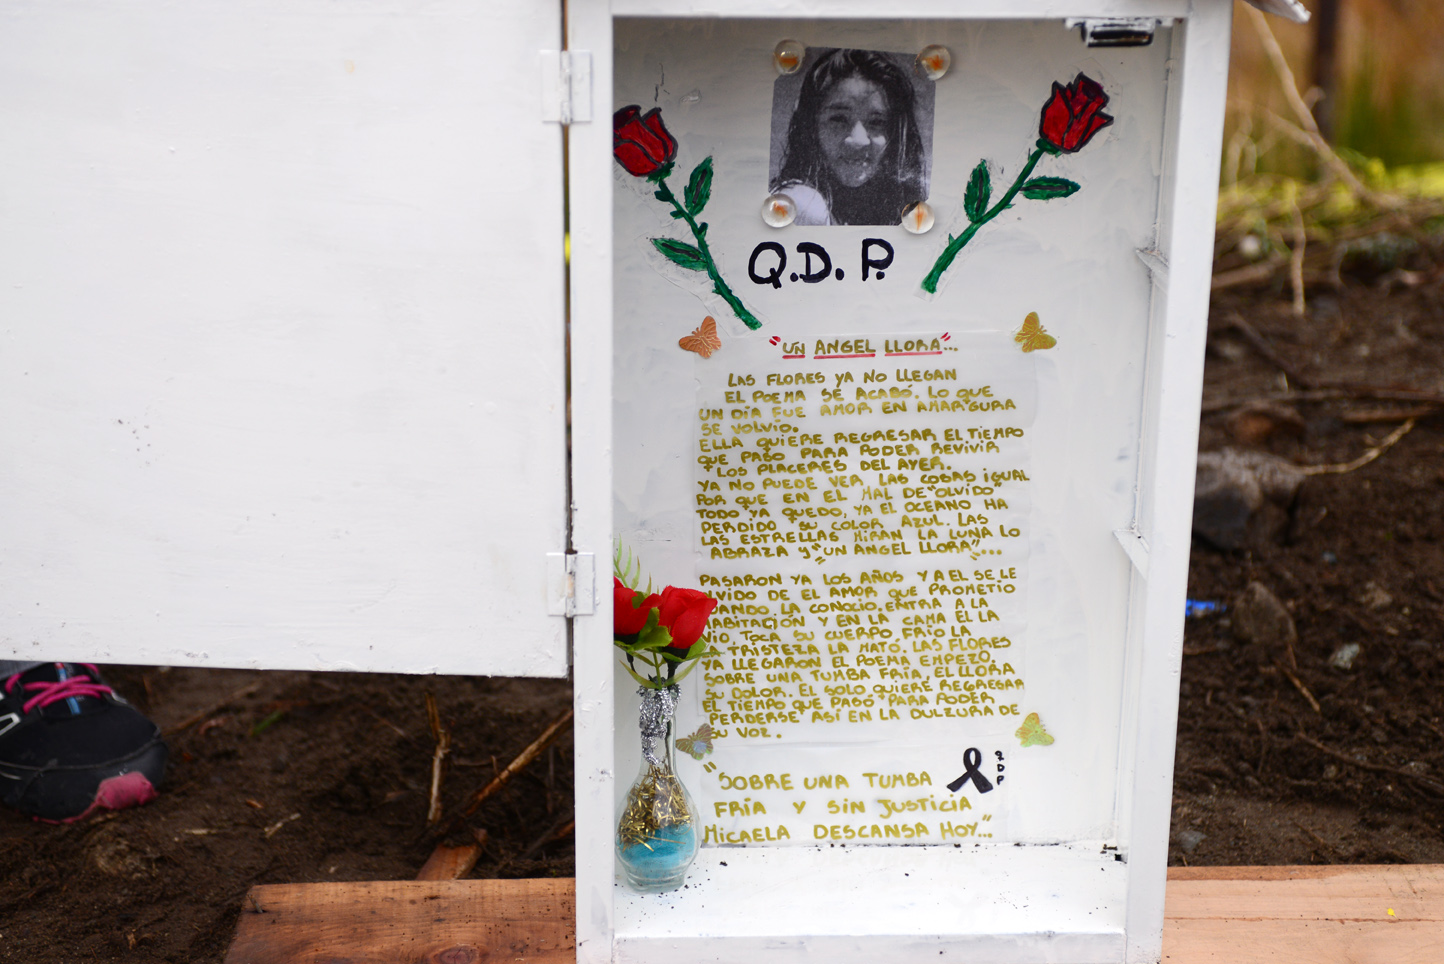 Q.D.P.
"UN ANGEL LLORA"...
LAS FLORES YA NO LLEGAN
EL POEMA SE ACABÓ. LO QUE
UN DÍA FUE AMOR EN AMARGURA
SE VOLVIÓ.
ELLA QUIERE REGRESAR EL TIEMPO
QUE PASO PARA PODER REVIVIR
LOS PLACERES DEL AYER.
YA NO PUEDE VER LAS COSAS IGUAL
POR QUE EN EL MAL DE "OLVIDO"
TODO YA QUEDO, YA EL OCEANO HA
PERDIDO SU COLOR AZUL. LAS
LAS ESTRELLAS MIRAN LA LUNA LO
ABRAZA Y "UN ANGEL LLORA"...
PASARON YA LOS AÑOS Y A EL SE LE
LVIDO DE EL AMOR QUE PROMETIO
UANDO LA CONOCIO. ENTRA A LA
HABITACIÓN Y EN LA CAMA EL LA
VIO TOCA SU CUERPO FRIO LA
TRISTEZA LA MATÓ. LAS FLORES
YA LLEGARON EL POEMA EMPEZO.
SOBRE UNA TUMBA FRÍA, EL LLORA
SU DOLOR. EL SOLO QUIERE REGRESAR
EL TIEMPO QUE PASÓ PARA PODER
PERDERSE ASÍ EN LA DULZURA DE
SU VOZ.
"SOBRE UNA TUMBA
FRÍA Y SIN JUSTICIA
MICAELA DESCANSA HOY..."
QDP